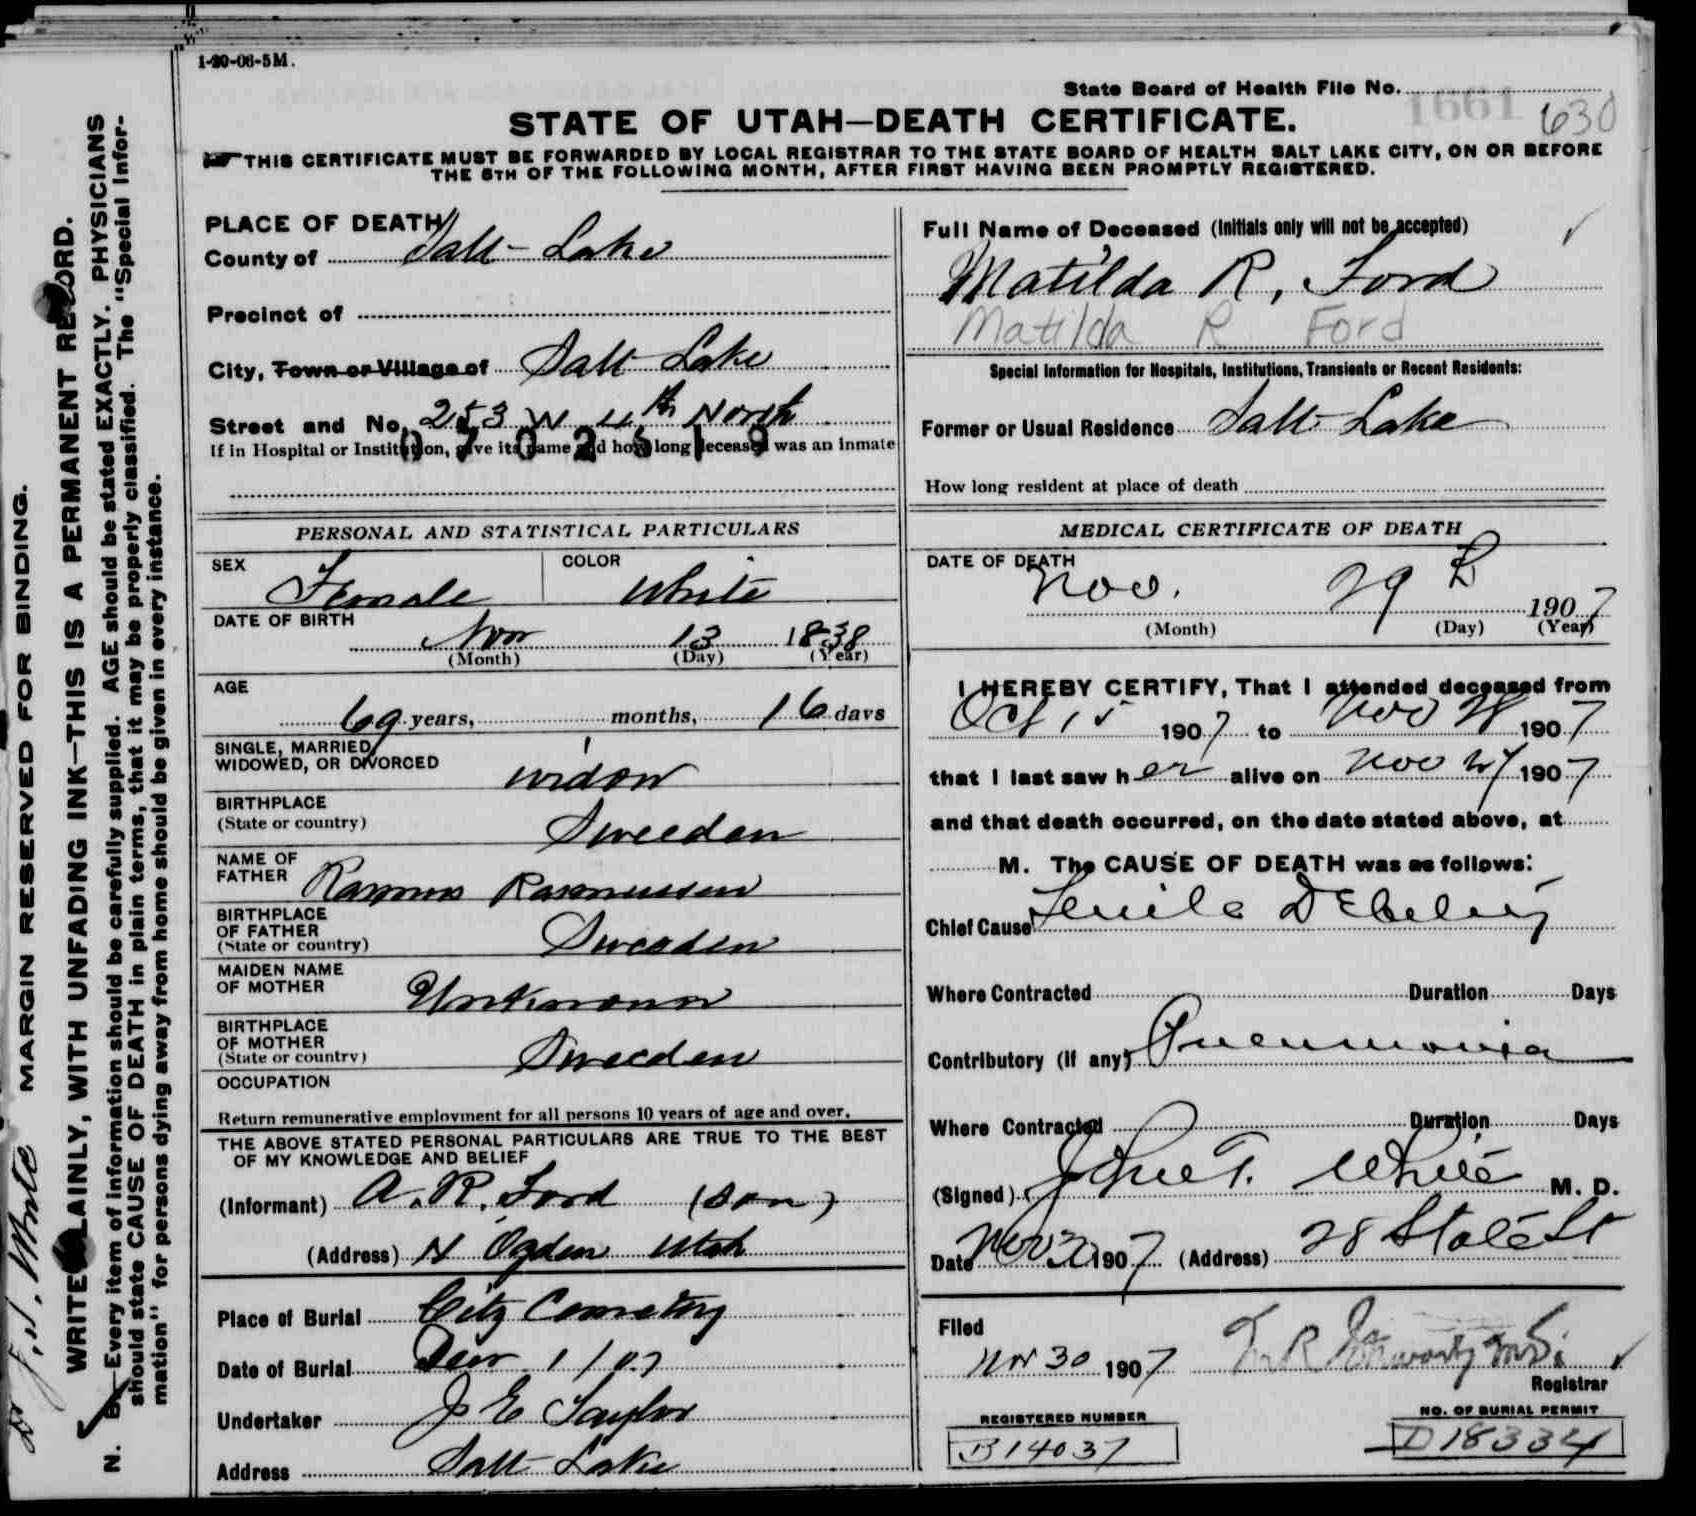 1-20-06-5M.
State Board of Health File No. 1661 630
STATE OF UTAH—DEATH CERTIFICATE.
THIS CERTIFICATE MUST BE FORWARDED BY LOCAL REGISTRAR TO THE STATE BOARD OF HEALTH SALT LAKE CITY, ON OR BEFORE
THE 5TH OF THE FOLLOWING MONTH, AFTER FIRST HAVING BEEN PROMPTLY REGISTERED.
PLACE OF DEATH
County of Salt Lake
Precinct of
City, Town or Village of Salt Lake
Street and No. 253 W 4th North
If in Hospital or Institution, give its name and how long deceased was an inmate
0702519
PERSONAL AND STATISTICAL PARTICULARS
SEX Female COLOR White
DATE OF BIRTH
Nov 13 1838
(Month) (Day) (Year)
AGE
69 years, months, 16 days
SINGLE, MARRIED,
WIDOWED, OR DIVORCED widow
BIRTHPLACE
(State or country) Sweedan
NAME OF
FATHER Rasmus Rasmussen
BIRTHPLACE
OF FATHER
(State or country) Sweaden
MAIDEN NAME
OF MOTHER Unknown
BIRTHPLACE
OF MOTHER
(State or country) Sweeden
OCCUPATION
Return remunerative employment for all persons 10 years of age and over.
THE ABOVE STATED PERSONAL PARTICULARS ARE TRUE TO THE BEST
OF MY KNOWLEDGE AND BELIEF
(Informant) A. R. Ford (son)
(Address) N Ogden Utah
Place of Burial City Cemetery
Date of Burial Decr 1/07
Undertaker J E Taylor
Address Salt Lake
Full Name of Deceased (Initials only will not be accepted)
Matilda R, Ford
Matilda R Ford
Special Information for Hospitals, Institutions, Transients or Recent Residents:
Former or Usual Residence Salt Lake
How long resident at place of death
MEDICAL CERTIFICATE OF DEATH
DATE OF DEATH
Nov. 29 1907
(Month) (Day) (Year)
I HEREBY CERTIFY, That I attended deceased from
Oct 15 1907 to Nov 28 1907
that I last saw her alive on Nov 27 1907
and that death occurred, on the date stated above, at
M. The CAUSE OF DEATH was as follows:
Chief Cause Senile Debility
Where Contracted Duration Days
Contributory (if any) Pneumonia
Where Contracted Duration Days
(Signed) White M. D.
Date Nov 1907 (Address) 28 State St
Filed
Nov 30 1907
Registrar
REGISTERED NUMBER
B14037
NO. OF BURIAL PERMIT
D18334
MARGIN RESERVED FOR BINDING.
WRITE PLAINLY, WITH UNFADING INK—THIS IS A PERMANENT RECORD.
N. B.—Every item of information should be carefully supplied. AGE should be stated EXACTLY. PHYSICIANS
should state CAUSE OF DEATH in plain terms, that it may be properly classified. The "Special Infor-
mation" for persons dying away from home should be given in every instance.